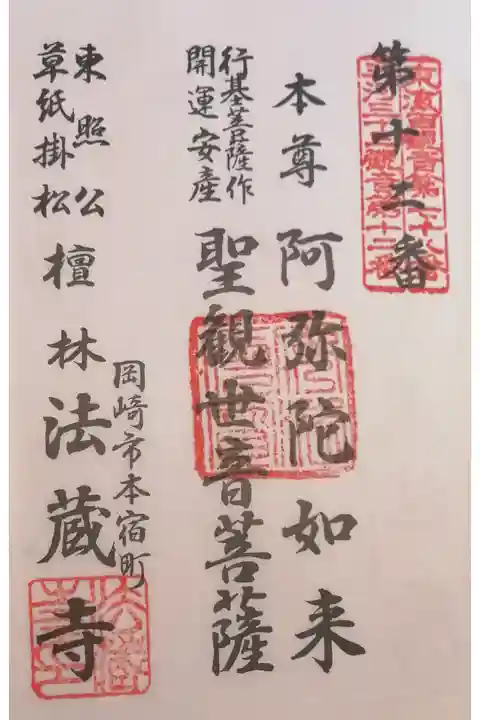 第十二番
本尊阿弥陀如来
行基菩薩作
開運安産
聖観世音菩薩
岡崎市本宿町
東照公
草紙掛松
檀林法蔵寺